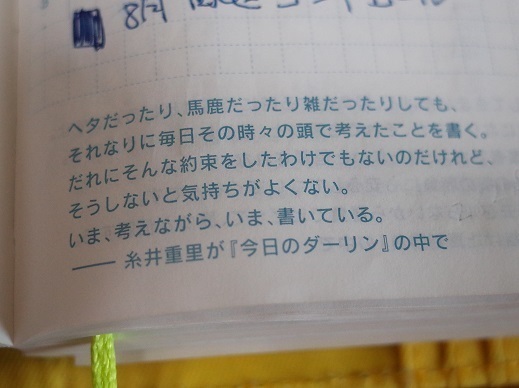 8月
ヘタだったり、馬鹿だったり雑だったりしても、
それなりに毎日その時々の頭で考えたことを書く。
だれにそんな約束をしたわけでもないのだけれど、
そうしないと気持ちがよくない。
いま、考えながら、いま、書いている。
── 糸井重里が『今日のダーリン』の中で